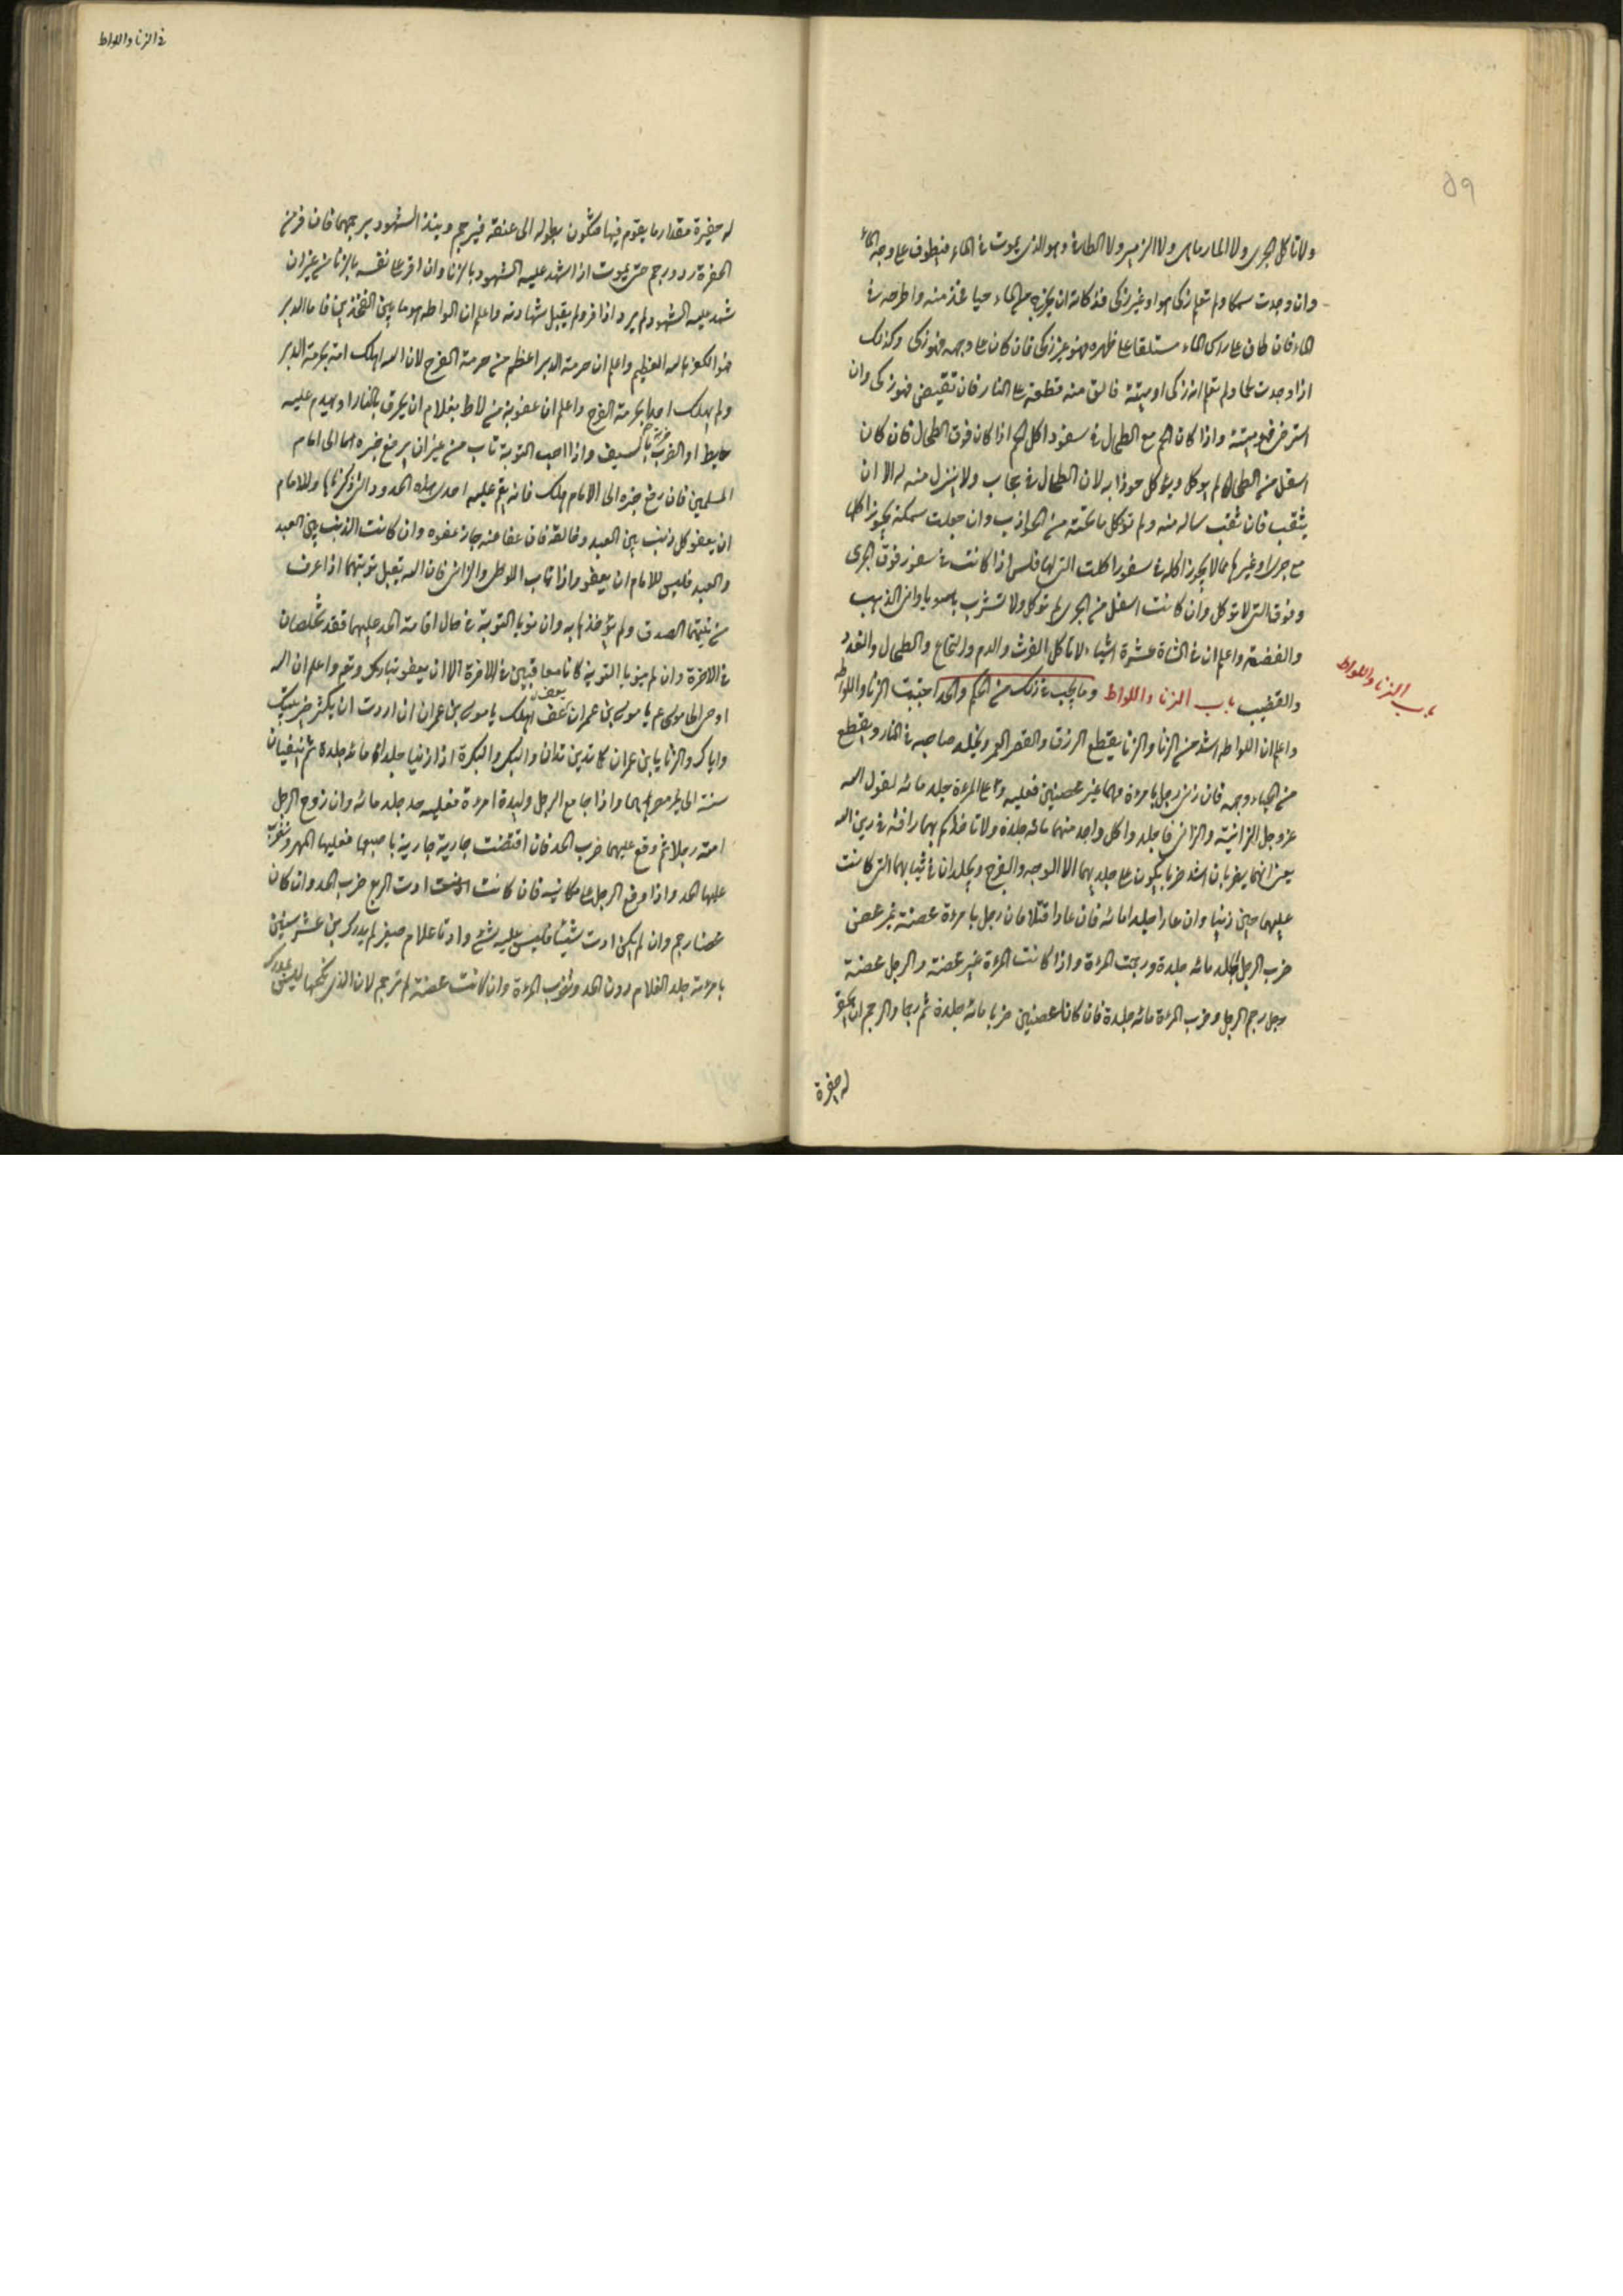 ٥٩
ولا تاكل الجرى ولا المارماهى ولا الزمير ولا الطافى وهو الذى يموت فى الماء فيطوف على وجه الماء
وان وجدت سمكا ولم تعلم ذكى هو او غير ذكى فذكاته ان يخرج من الماء حيا فخذ منه واطرحه فى
الماء فان طفى على راس الماء مستلقيا على ظهره فهو غير ذكى فان كان على وجهه فهو ذكى وكذلك
اذا وجدت لحما ولم تعلم انه ذكى او ميتة فالق منه قطعة على النار فان تقبض فهو ذكى وان
استرخى فهو ميتة واذا كان اللحم مع الطحال فى سفود اكل اللحم اذا كان فوق الطحال فان كان
اسفل من الطحال لم يوكل ويوكل جوذابه لان الطحال فى حجاب ولا ينزل منه الا ان
يثقب فان ثقب سال منه ولم توكل ما تحته من الجواذب وان جعلت سمكة يجوز اكلها
مع جرى او غيرها مما لا يجوز اكله فى سفود اكلت التى لها فلس اذا كانت فى سفود فوق الجرى
وفوق التى لا توكل وان كانت اسفل من الجرى لم توكل ولا تشرب باوانى الذهب
والفضة واعلم ان فى الشاة عشرة اشياء لا تاكل الفرث والدم والنخاع والطحال والغدد
والقضيب باب الزنا واللواط وما يجب فى ذلك من الحكم والحد اجتنبت الزنا واللواطه
باب الزنا واللواط
واعلم ان اللواطه اشد من الزنا والزنا يقطع الرزق والعمر ويخلد صاحبه فى النار ويقطع
من الحياء وجهه فان زنى رجل بامرءة وهما غير محصنين فعليه وعلى المرءة جلد مائه لقول الله
عز وجل الزانية والزانى فاجلدوا كل واحد منهما مائه جلدة ولا تاخذكم بهما رافة فى دين الله
يعنى انهما يضربان اشد ضرب يكون على جلديهما الا الوجه والفرج ويجلدان فى ثيابهما التى كانت
عليهما حين زنيا وان عادا جلدا مائه فان عادا قتلا فان رجل بامرءة محصنة غير محصن
ضرب الرجل الجلد مائه جلدة ورجمت المرءة واذا كانت المرءة غير محصنة والرجل محصنة
رجل رجم الرجل وضرب المرءة مائه جلدة فان كانا محصنين ضربا مائه جلدة ثم رجما والرجم ان يحفر
له حفرة
فى الزنا واللواط
له حفيرة مقدار ما يقوم فيها فتكون بطوله الى عنقه فيرجم ويبدا الشهود برجمهما فان فر من
الحفرة رد ورجم حتى يموت اذا شهد عليه الشهود بالزنا وان اقر على نفسه بالزنا من غير ان
شهد عليه الشهود لم يرد اذا فر ولم يقبل شهادته واعلم ان اللواطه هو ما بين الفخذين فاما الدبر
فهو الكفر بالله العظيم واعلم ان حرمة الدبر اعظم من حرمة الفرج لان الله اهلك امة بحرمة الدبر
ولم يهلك احدا بحرمة الفرج واعلم ان عقوبة من لاط بغلام ان يحرق بالنار او يهدم عليه
حايط او يضرب ضربة بالسيف واذا احب التوبة تاب من غير ان يرفع خبره الى امام
المسلمين فان رفع خبره الى الامام هلك فانه يقيم عليه احدى هذه الحدود التى ذكرناها وللامام
ان يعفو كل ذنب بين العبد وخالقه فان عفا عنه جاز عفوه وان كانت الذنب بين العبد
والعبد فليس للامام ان يعفو واذا تاب اللوطى والزانى فان الله يقبل توبتهما اذا عرف
من نيتهما الصدق ولم يؤخذهما به وان نويا التوبة فى حال اقامة الحد عليهما فقد تخلصان
فى الاخرة وان لم ينويا التوبة كانا معاقبين فى الاخرة الا ان يعفو تبارك وتعالى واعلم ان الله
اوحى الى موسى ع يا موسى بن عمران عف يعف اهلك يا موسى بن عمران ان اردت ان يكثر خير بيتك
واياك والزنا يا بن عمران كما تدين تدان والبكر والبكرة اذا زنيا جلدا مائه جلدة ثم ينفيان
سنة الى غير مصرهما واذا جامع الرجل وليدة امرءة فعليه حد جلد مائه وان زوج الرجل
امته رجلا ثم وقع عليهما ضرب الحد فان اقتضت جارية جارية باصبعها فعليها المهر وتضرب
عليها الحد واذا وقع الرجل على مكاتبة فان كانت ادت الربع ضرب الحد وان كان
محصنا رجم وان لم يكن ادت شيئا فليس عليه شئ واذا اتى غلام صغير لم يدرك بن عشر سنين
بامرءة جلد الغلام دون الحد وتضرب المرءة وان كانت محصنة لم ترجم لان الذى نكحها ليس بمدرك